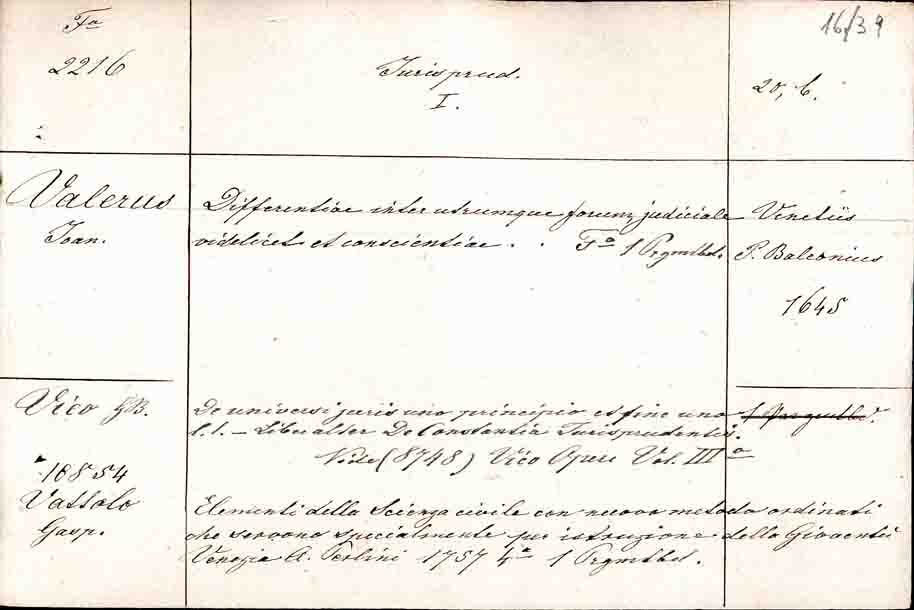 Fo
2216
Jurisprud.
I.
16/39
20, 6.
Valerus
Joan.
Differentiae inter utrumque forum judiciale
videlicet et conscientiae. . Fo 1 Prgmtbd.
Venetiis
P. Baleonius
1645
Vico GB.
De universi juris uno principio et fine uno
l. 1. – Liber alter De Constantia Jurisprudentis.
Vide (8748) Vico Opere Vol. IIIo
16854
Vassolo
Gasp.
Elementi della Scienza civile con nuovo metodo ordinati
che servono specialmente per istruzione della Gioventù
Venezia A. Perlini 1757 4o 1 Prgmtbd.